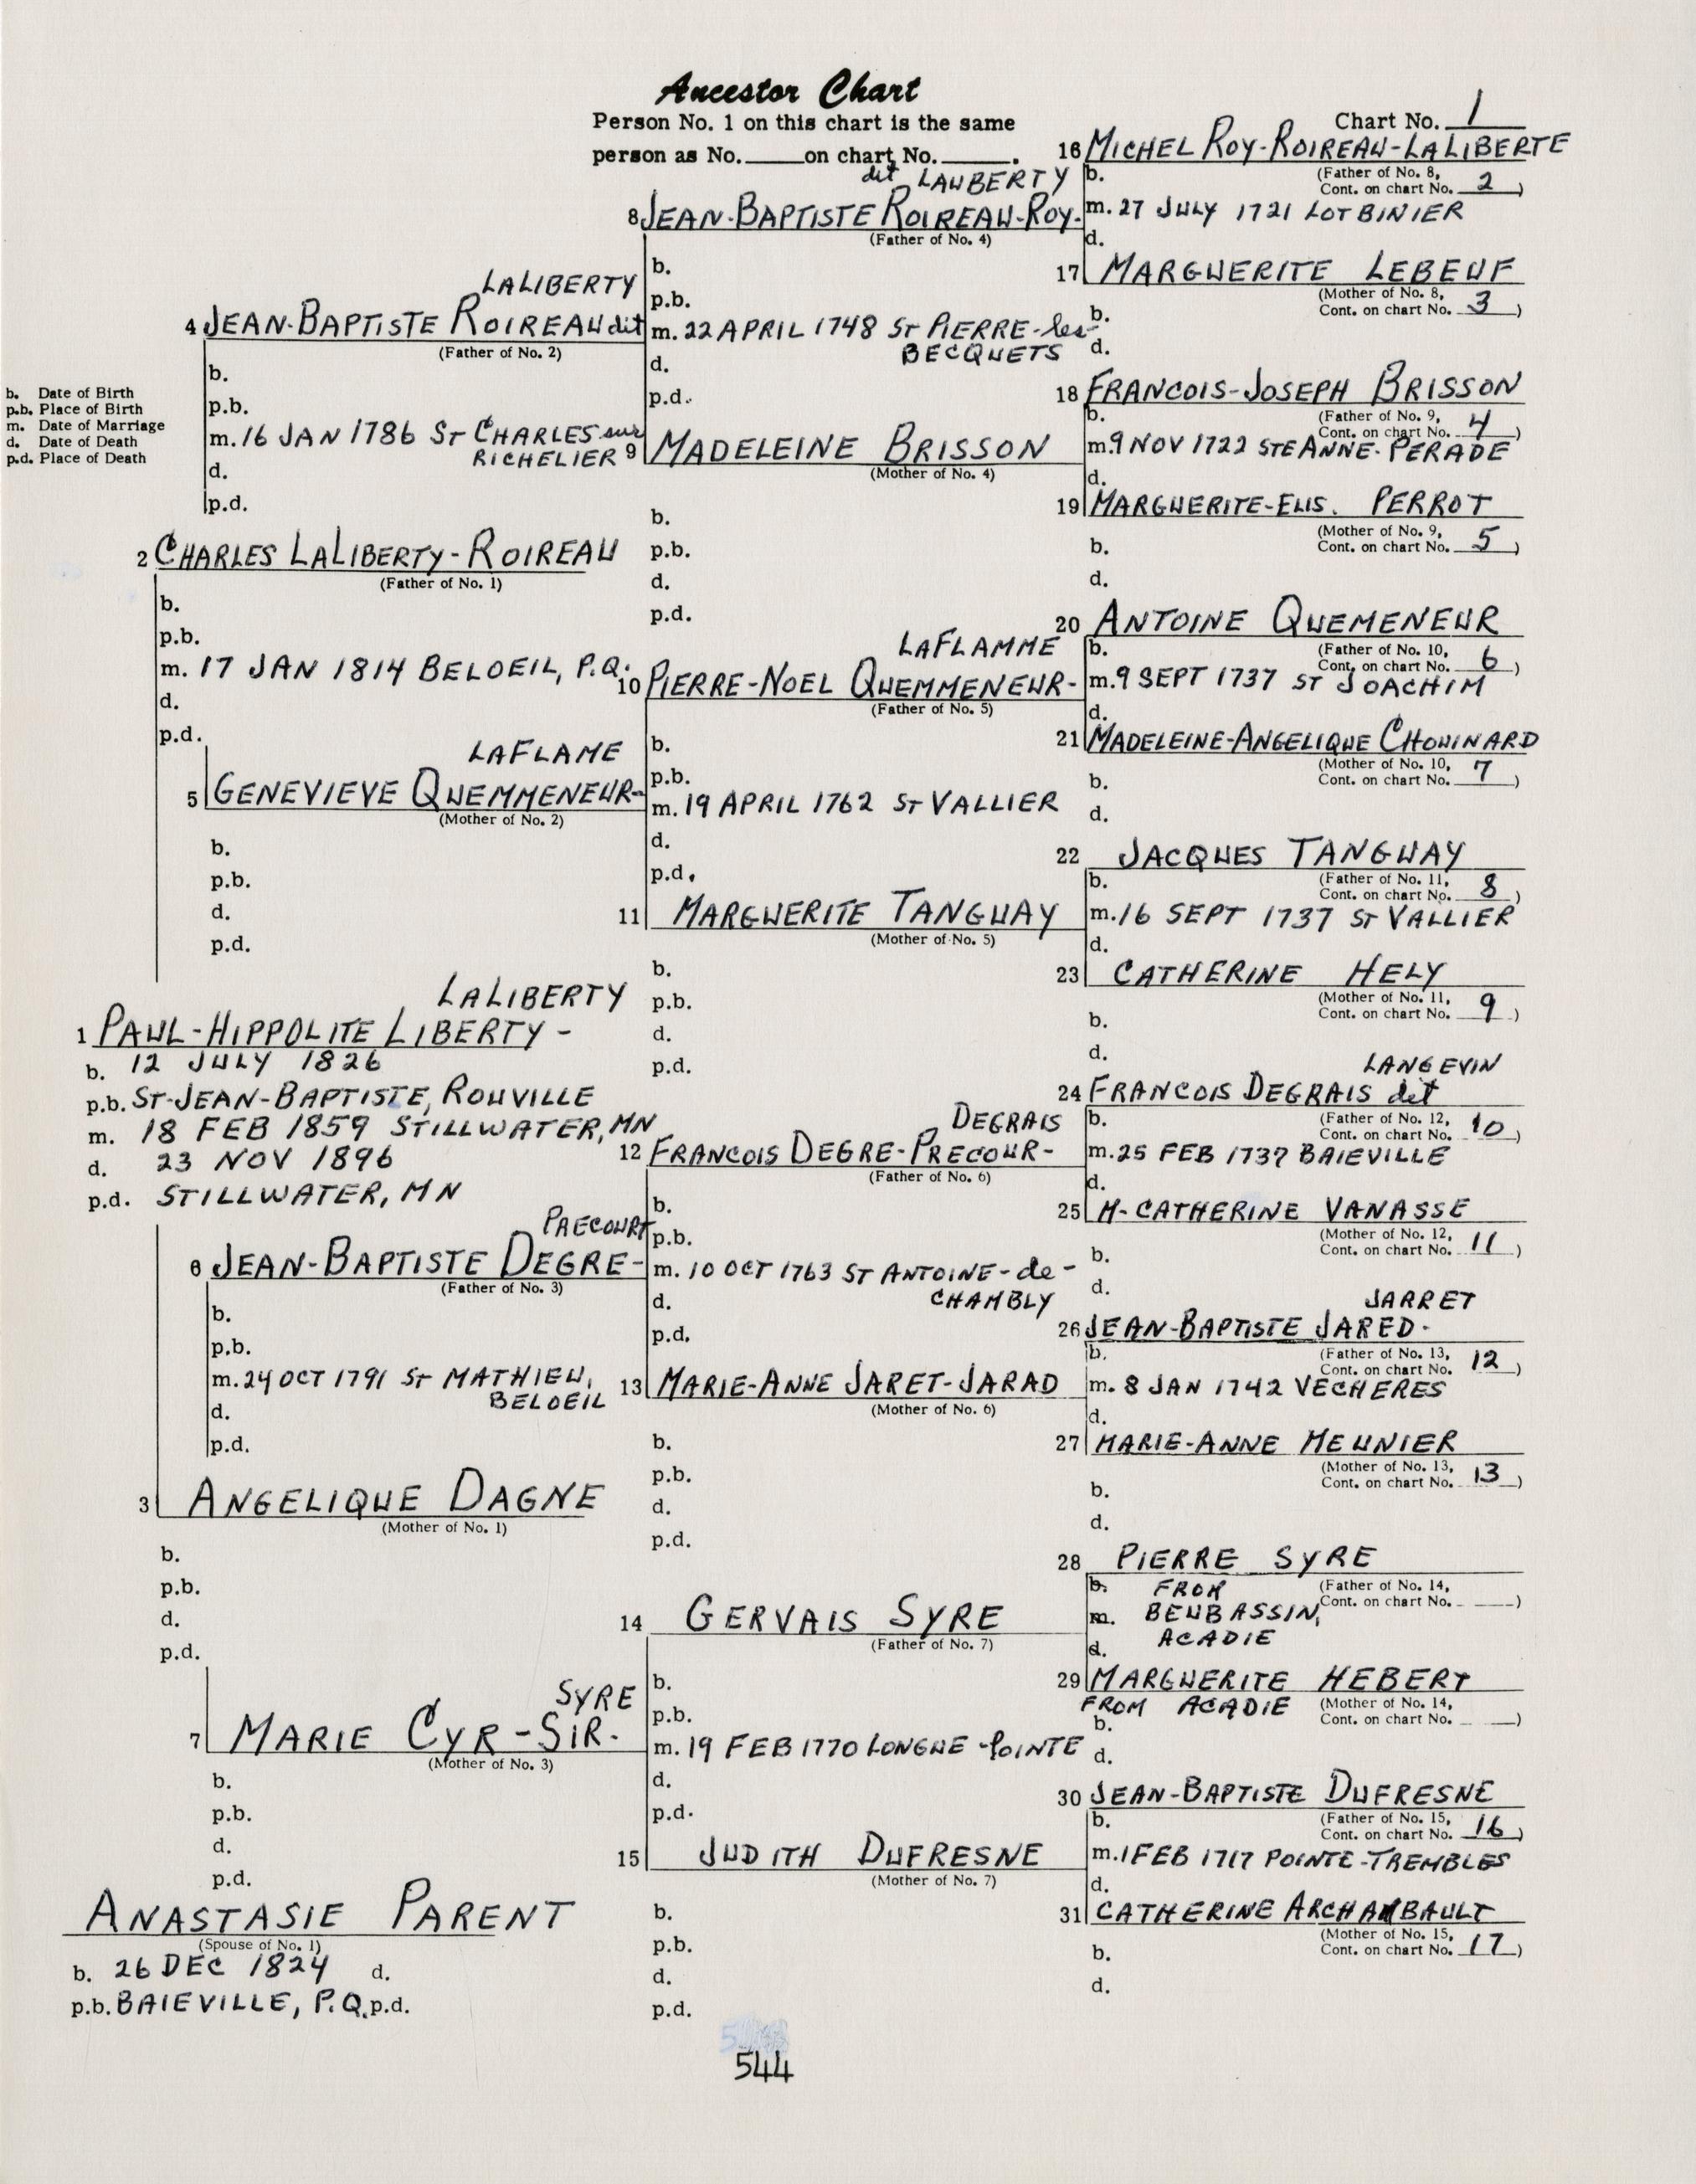 Ancestor Chart
Person No. 1 on this chart is the same
person as No. ____ on chart No. ____.
Chart No. 1
b. Date of Birth
p.b. Place of Birth
m. Date of Marriage
d. Date of Death
p.d. Place of Death
LALIBERTY
1 PAUL-HIPPOLITE LIBERTY -
b. 12 JULY 1826
p.b. ST-JEAN-BAPTISTE, ROUVILLE
m. 18 FEB 1859 STILLWATER, MN
d. 23 NOV 1896
p.d. STILLWATER, MN
2 CHARLES LALIBERTY-ROIREAU
(Father of No. 1)
b.
p.b.
m. 17 JAN 1814 BELOEIL, P.Q.
d.
p.d.
3 ANGELIQUE DAGNE
(Mother of No. 1)
b.
p.b.
d.
p.d.
ANASTASIE PARENT
(Spouse of No. 1)
b. 26 DEC 1824 d.
p.b. BAIEVILLE, P.Q. p.d.
LALIBERTY
4 JEAN-BAPTISTE ROIREAU dit
(Father of No. 2)
b.
p.b.
m. 16 JAN 1786 ST CHARLES sur
RICHELIER
d.
p.d.
LAFLAME
5 GENEVIEVE QUEMMENEUR-
(Mother of No. 2)
b.
p.b.
d.
p.d.
PRECOURT
6 JEAN-BAPTISTE DEGRE-
(Father of No. 3)
b.
p.b.
m. 24 OCT 1791 ST MATHIEU,
BELOEIL
d.
p.d.
SYRE
7 MARIE CYR-SIR.
(Mother of No. 3)
b.
p.b.
d.
p.d.
dit LAUBERTY
8 JEAN-BAPTISTE ROIREAU-ROY-
(Father of No. 4)
b.
p.b.
m. 22 APRIL 1748 ST PIERRE-les-
BECQUETS
d.
p.d.
9 MADELEINE BRISSON
(Mother of No. 4)
b.
p.b.
d.
p.d.
LAFLAMME
10 PIERRE-NOEL QUEMMENEUR-
(Father of No. 5)
b.
p.b.
m. 19 APRIL 1762 ST VALLIER
d.
p.d.
11 MARGUERITE TANGUAY
(Mother of No. 5)
b.
p.b.
d.
p.d.
DEGRAIS
12 FRANCOIS DEGRE-PRECOUR-
(Father of No. 6)
b.
p.b.
m. 10 OCT 1763 ST ANTOINE-de-
CHAMBLY
d.
p.d.
13 MARIE-ANNE JARET-JARAD
(Mother of No. 6)
b.
p.b.
d.
p.d.
14 GERVAIS SYRE
(Father of No. 7)
b.
p.b.
m. 19 FEB 1770 LONGUE-POINTE
d.
p.d.
15 JUDITH DUFRESNE
(Mother of No. 7)
b.
p.b.
d.
p.d.
16 MICHEL ROY-ROIREAU-LALIBERTE
b. (Father of No. 8,
Cont. on chart No. 2)
m. 27 JULY 1721 LOTBINIER
d.
17 MARGUERITE LEBEUF
(Mother of No. 8,
Cont. on chart No. 3)
b.
d.
18 FRANCOIS-JOSEPH BRISSON
b. (Father of No. 9,
Cont. on chart No. 4)
m. 9 NOV 1722 STE ANNE-PERADE
d.
19 MARGUERITE-ELIS. PERROT
(Mother of No. 9,
Cont. on chart No. 5)
b.
d.
20 ANTOINE QUEMENEUR
b. (Father of No. 10,
Cont. on chart No. 6)
m. 9 SEPT 1737 ST JOACHIM
d.
21 MADELEINE-ANGELIQUE CHOUINARD
(Mother of No. 10,
Cont. on chart No. 7)
b.
d.
22 JACQUES TANGUAY
b. (Father of No. 11,
Cont. on chart No. 8)
m. 16 SEPT 1737 ST VALLIER
d.
23 CATHERINE HELY
(Mother of No. 11,
Cont. on chart No. 9)
b.
d.
LANGEVIN
24 FRANCOIS DEGRAIS dit
b. (Father of No. 12,
Cont. on chart No. 10)
m. 25 FEB 1737 BAIEVILLE
d.
25 M-CATHERINE VANASSE
(Mother of No. 12,
Cont. on chart No. 11)
b.
d.
JARRET
26 JEAN-BAPTISTE JARED-
b. (Father of No. 13,
Cont. on chart No. 12)
m. 8 JAN 1742 VECHERES
d.
27 MARIE-ANNE MEUNIER
(Mother of No. 13,
Cont. on chart No. 13)
b.
d.
28 PIERRE SYRE
b. FROM (Father of No. 14,
Cont. on chart No. ____)
m. BEUBASSIN,
d. ACADIE
29 MARGUERITE HEBERT
FROM ACADIE (Mother of No. 14,
Cont. on chart No. ____)
b.
d.
30 JEAN-BAPTISTE DUFRESNE
b. (Father of No. 15,
Cont. on chart No. 16)
m. 1 FEB 1717 POINTE-TREMBLES
d.
31 CATHERINE ARCHAMBAULT
(Mother of No. 15,
Cont. on chart No. 17)
b.
d.
544